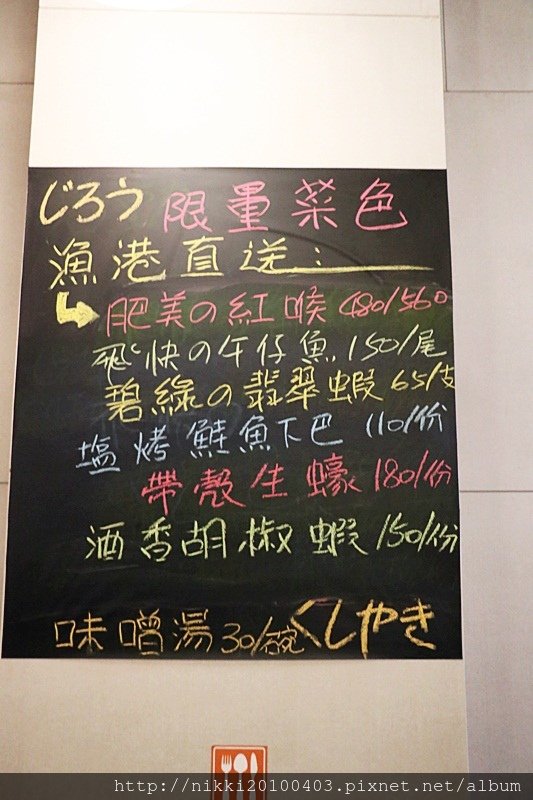 じろう 限量菜色
漁港直送:
肥美の紅喉 480/560
飛快の午仔魚 150/尾
碧綠の翡翠蝦 65/支
塩烤鮭魚下巴 110/份
帶殼生蠔 180/份
酒香胡椒蝦 150/份
味噌湯 30/碗 くしやき
http://nikki20100403.pixnet.net/album